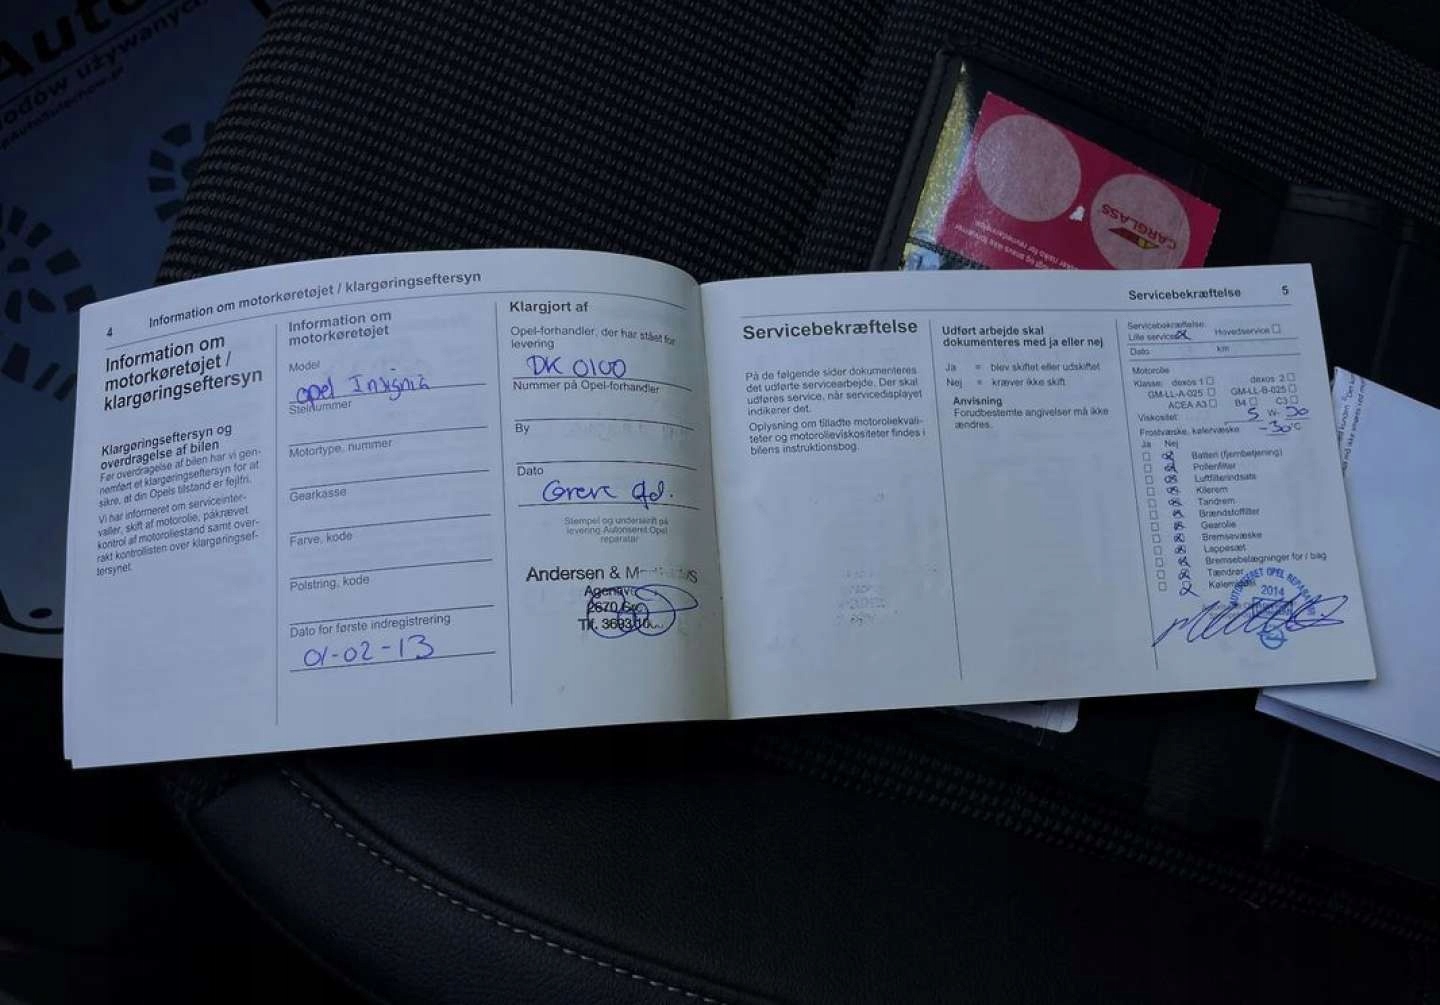 4
Information om motorkøretøjet / klargøringseftersyn
Information om
motorkøretøjet /
klargøringseftersyn
Klargøringseftersyn og
overdragelse af bilen
Før overdragelse af bilen har vi gen-
nemført et klargøringseftersyn for at
sikre, at din Opels tilstand er fejlfri.
Vi har informeret om serviceinter-
valler, skift af motorolie, påkrævet
kontrol af motoroliestand samt over-
rakt kontrollisten over klargøringsef-
tersynet.
Information om
motorkøretøjet
Model
opel Insignia
Stelnummer
Motortype, nummer
Gearkasse
Farve, kode
Polstring, kode
Dato for første indregistrering
01-02-13
Klargjort af
Opel-forhandler, der har stået for
levering
DK 0100
Nummer på Opel-forhandler
By
Dato
Greve
Stempel og underskrift på
levering Autoriseret Opel
reparatør
Andersen & M
2670
Tlf.
Servicebekræftelse
5
Servicebekræftelse
På de følgende sider dokumenteres
det udførte servicearbejde. Der skal
udføres service, når servicedisplayet
indikerer det.
Oplysning om tilladte motoroliekvali-
teter og motorolieviskositeter findes i
bilens instruktionsbog.
Udført arbejde skal
dokumenteres med ja eller nej
Ja = blev skiftet eller udskiftet
Nej = kræver ikke skift
Anvisning
Forudbestemte angivelser må ikke
ændres.
Servicebekræftelse:
Lille service Hovedservice
Dato km
Motorolie
Klasse: dexos 1 dexos 2
GM-LL-A-025 GM-LL-B-025
ACEA A3 B4 C3
Viskositet: 5 W- 30
Frostvæske, kølervæske -30 °C
Ja Nej
Batteri (fjernbetjening)
Pollenfilter
Luftfilterindsats
Kilerem
Tandrem
Brændstoffilter
Gearolie
Bremsevæske
Lappesæt
Bremsebelægninger for / bag
Tændrør
AUTORISERET OPEL
2014
CARGLASS